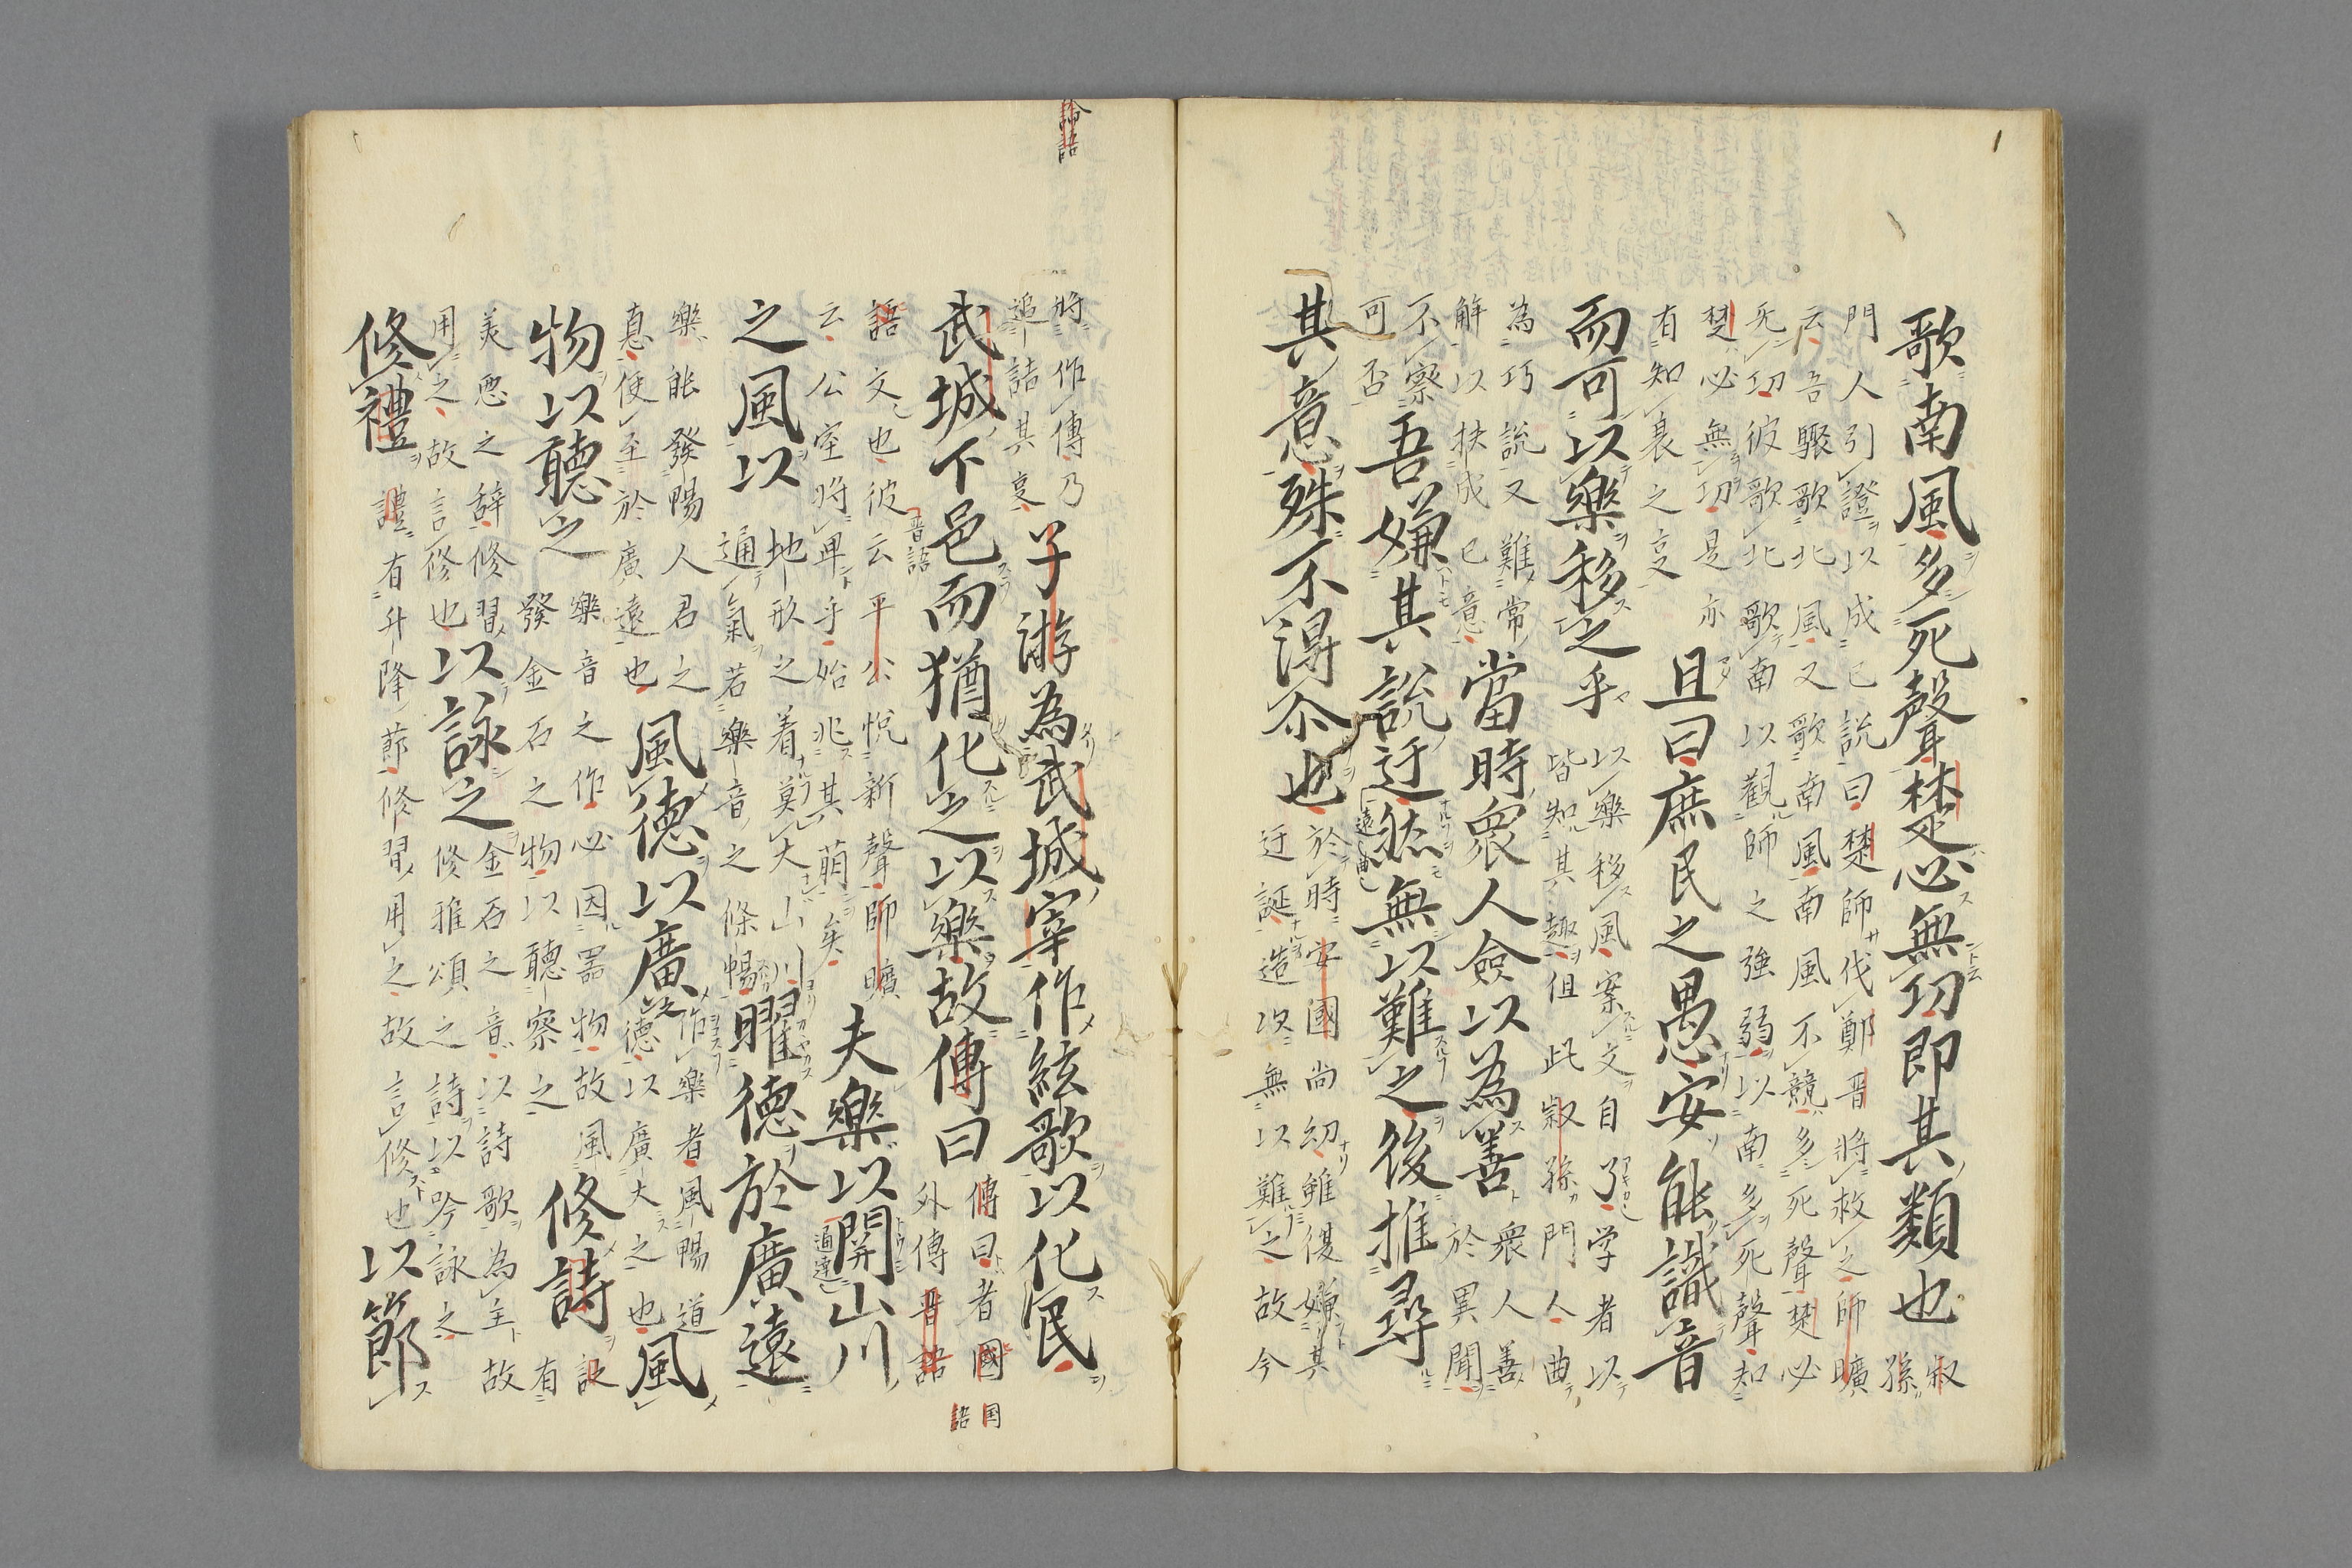 歌南風多死聲楚必無功即其類也叔孫
門人引證以成己説曰楚師伐鄭晋將救之師曠
云吾驟歌北風又歌南風南風不競多死聲楚必
无功彼歌北歌南以觀師之強弱以南多死聲知
楚必無功是亦
有知哀之㐮且曰庶民之愚安能識音
而可以樂移之乎以樂移風案文自了学者以
皆知其趣但此叔孫門人曲
為巧説又難常
解以扶成己意當時衆人僉以為善衆人善
於異聞
不察
可否吾嫌其説迂然無以難之後推尋
其意殊不得尒也於時安國尚幼雖復嫌其
迂誕造次無以難之故今
論語
將作傳乃
追詰其㐮子游為武城宰作絃歌以化民
武城下邑而猶化之以樂故傳曰傳曰者國
外傳晋語
国語
晋語
語文也彼云平公悅新聲師曠
云公室將卑乎始兆其萌矣夫樂以開山川
通達
之風以地形之着莫大山川
通氣若樂音之條暢曜德於廣遠
樂能發暢人君之
惪使至於廣遠也風德以廣之作樂者風暢道
德以廣大之也風
物以聽之樂音之作必因噐物故風
發金石之物以聽察之修詩以
詠之
美恶之辭修習金石之音以詩歌為主故
用之故言修也修雅頌之詩以吟詠之
修禮禮有升降節修習用之故言修也以節